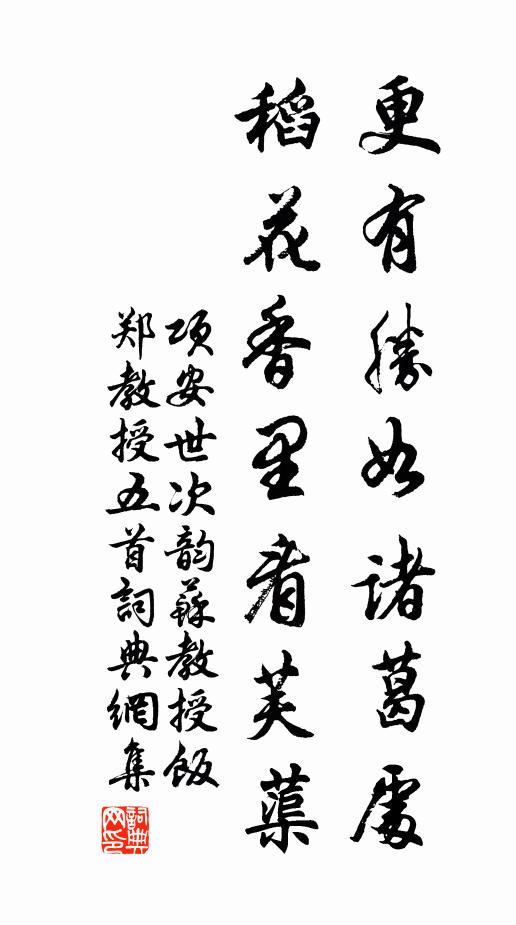 更有勝如诸葛處
稻花香里看芙蕖
项安世次韵蘇教授飯
郑教授五首詞典網集
詞典网印